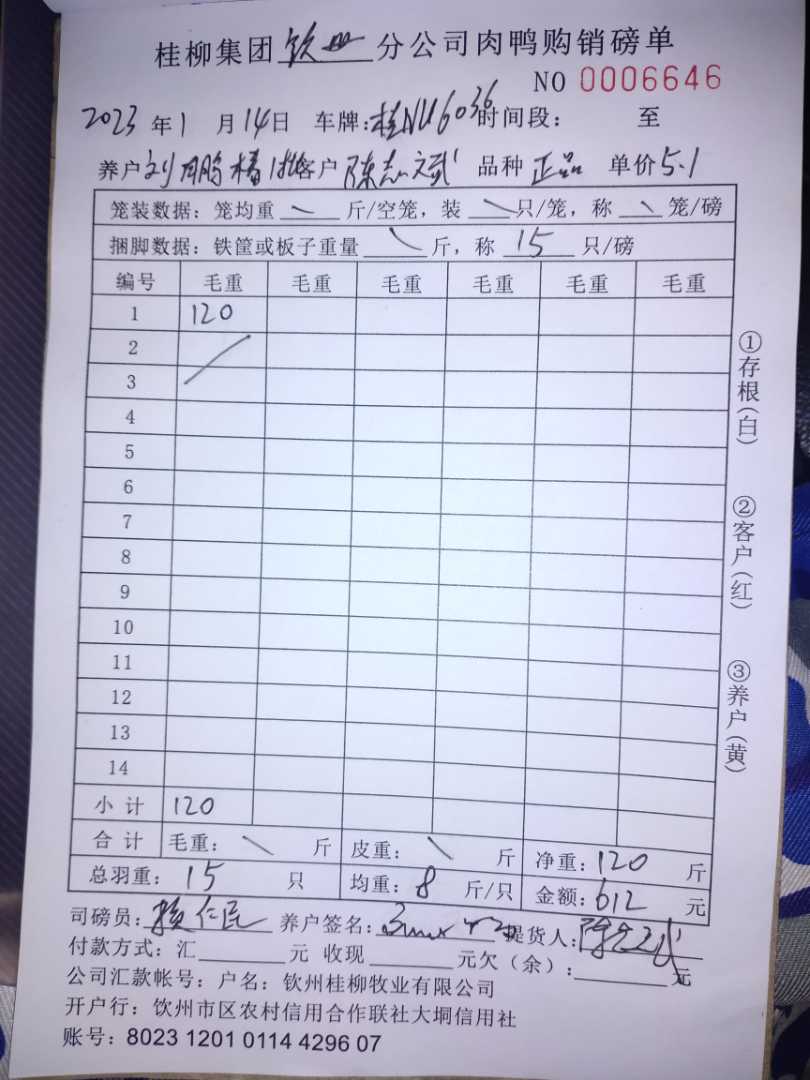 桂柳集团钦州分公司肉鸭购销磅单
NO 0006646
2023年1月14日 车牌:桂NU6036时间段: 至
养户刘鹏椿 客户陈志斌 品种正品 单价5.1
笼装数据:笼均重 \ 斤/空笼,装 \ 只/笼,称 \ 笼/磅
捆脚数据:铁筐或板子重量 \ 斤,称 15 只/磅
编号 毛重 毛重 毛重 毛重 毛重 毛重
1 120
2
3
4
5
6
7
8
9
10
11
12
13
14
小计 120
合计 毛重: \ 斤 皮重: \ 斤 净重:120 斤
总羽重:15 只 均重:8 斤/只 金额:612 元
司磅员: 养户签名: 提货人:
付款方式:汇 元 收现 元欠(余): 元
公司汇款帐号:户名:钦州桂柳牧业有限公司
开户行:钦州市区农村信用合作联社大垌信用社
账号:8023 1201 0114 4296 07
①存根(白)
②客户(红)
③养户(黄)